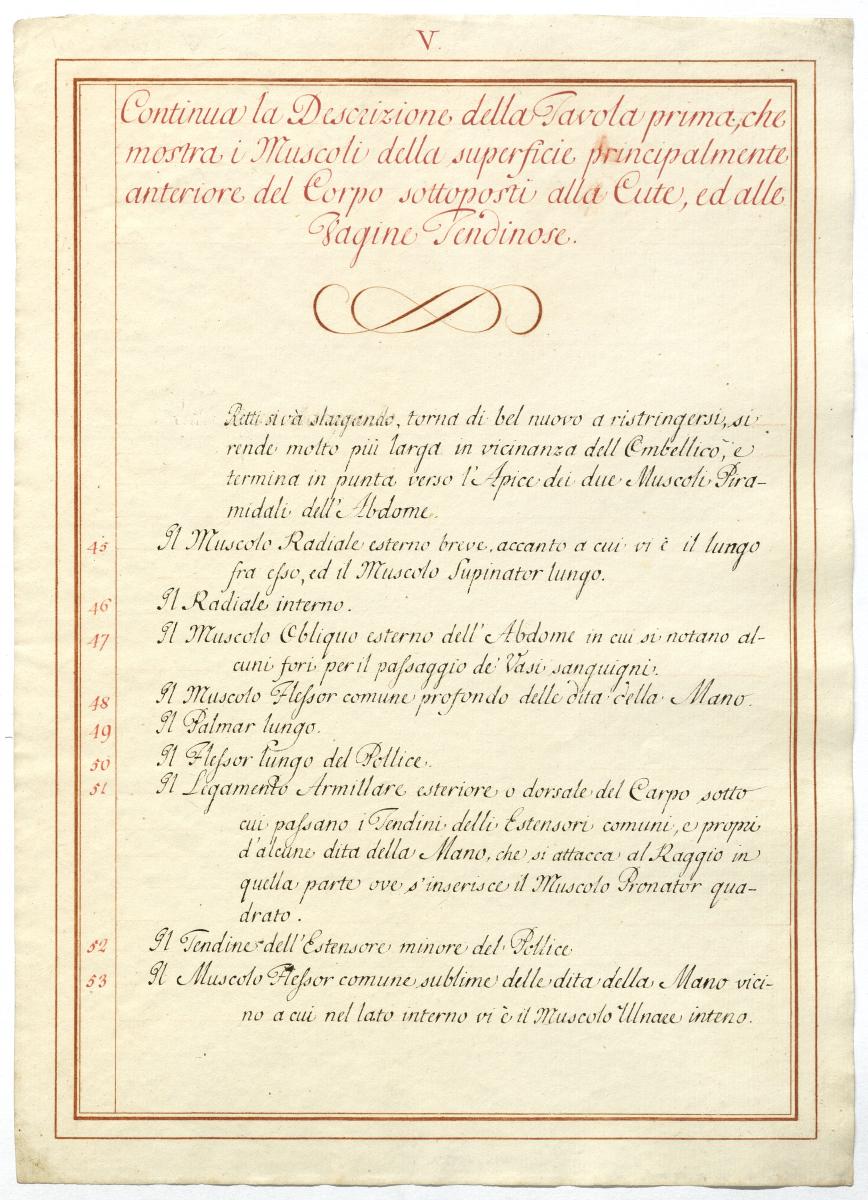 V.
Continua la Descrizione della Tavola prima, che
mostra i Muscoli della superficie principalmente
anteriore del Corpo sottoposti alla Cute, ed alle
Vagine Tendinose.
Retti si và slargando, torna di bel nuovo a ristringersi, si
rende molto più larga in vicinanza dell'Ombellico, e
termina in punta verso l'Apice dei due Muscoli Pira-
midali dell'Abdome.
45 Il Muscolo Radiale esterno breve, accanto a cui vi è il lungo
fra esso, ed il Muscolo Supinator lungo.
46 Il Radiale interno.
47 Il Muscolo Obliquo esterno dell'Abdome in cui si notano al-
cuni fori per il passaggio de' Vasi sanguigni.
48 Il Muscolo Flessor comune profondo delle dita della Mano.
49 Il Palmar lungo.
50 Il Flessor lungo del Pollice.
51 Il Legamento Armillare esteriore o dorsale del Carpo sotto
cui passano i Tendini delli Estensori comuni, e propri
d'alcune dita della Mano, che si attacca al Raggio in
quella parte ove s'inserisce il Muscolo Pronator qua-
drato.
52 Il Tendine dell'Estensore minore del Pollice
53 Il Muscolo Flessor comune sublime delle dita della Mano vici-
no a cui nel lato interno vi è il Muscolo Ulnare inteno.